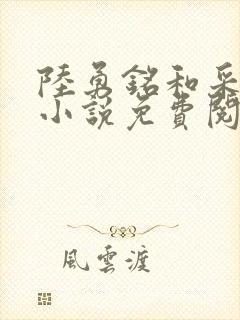 陸勇銘和采
小說免費閱
風雲渡